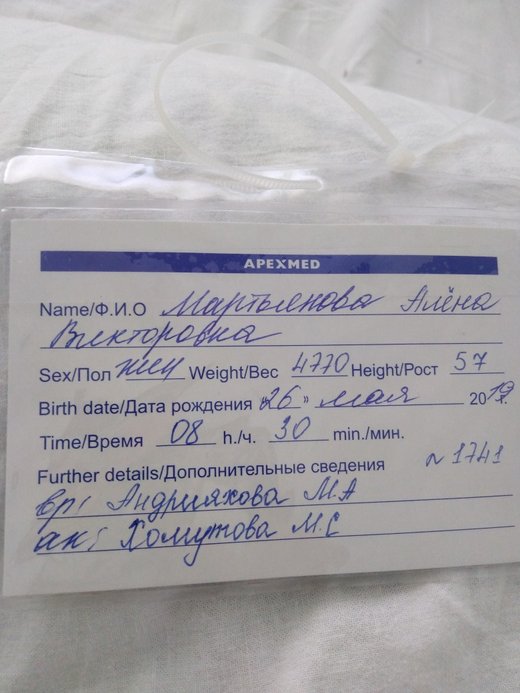 APEXMED
Name/Ф.И.О Мартьянова Алёна
Викторовна
Sex/Пол жен Weight/Вес 4770 Height/Рост 57
Birth date/Дата рождения «26» мая 2019г.
Time/Время 08 h./ч. 30 min./мин.
Further details/Дополнительные сведения №1741
вр: Андрияхова М.А
ак: Хомутова М.С